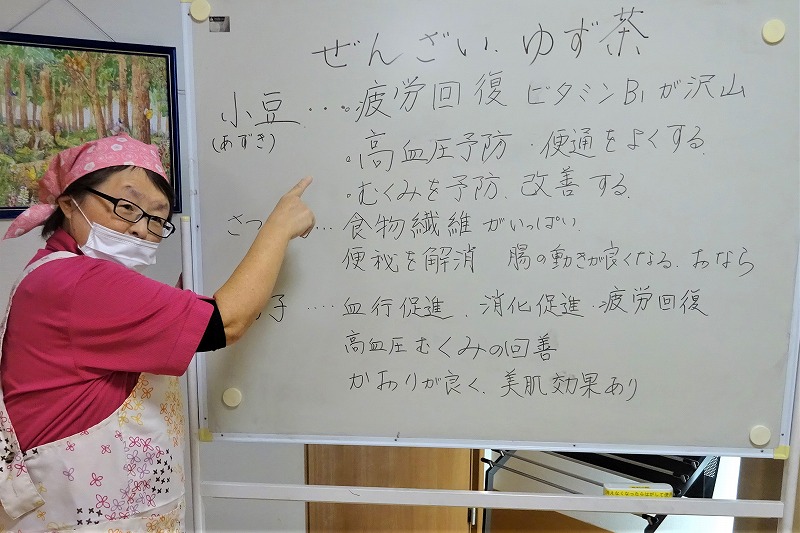 ぜんざい、ゆず茶
小豆・・・。疲労回復 ビタミンB1が沢山
(あずき)
。高血圧予防・便通をよくする。
。むくみを予防、改善する。
さつ ・・・食物繊維がいっぱい。
便秘を解消 腸の動きが良くなる。おなら
子・・・・血行促進、消化促進・疲労回復
高血圧むくみの回善
かおりが良く、美肌効果あり